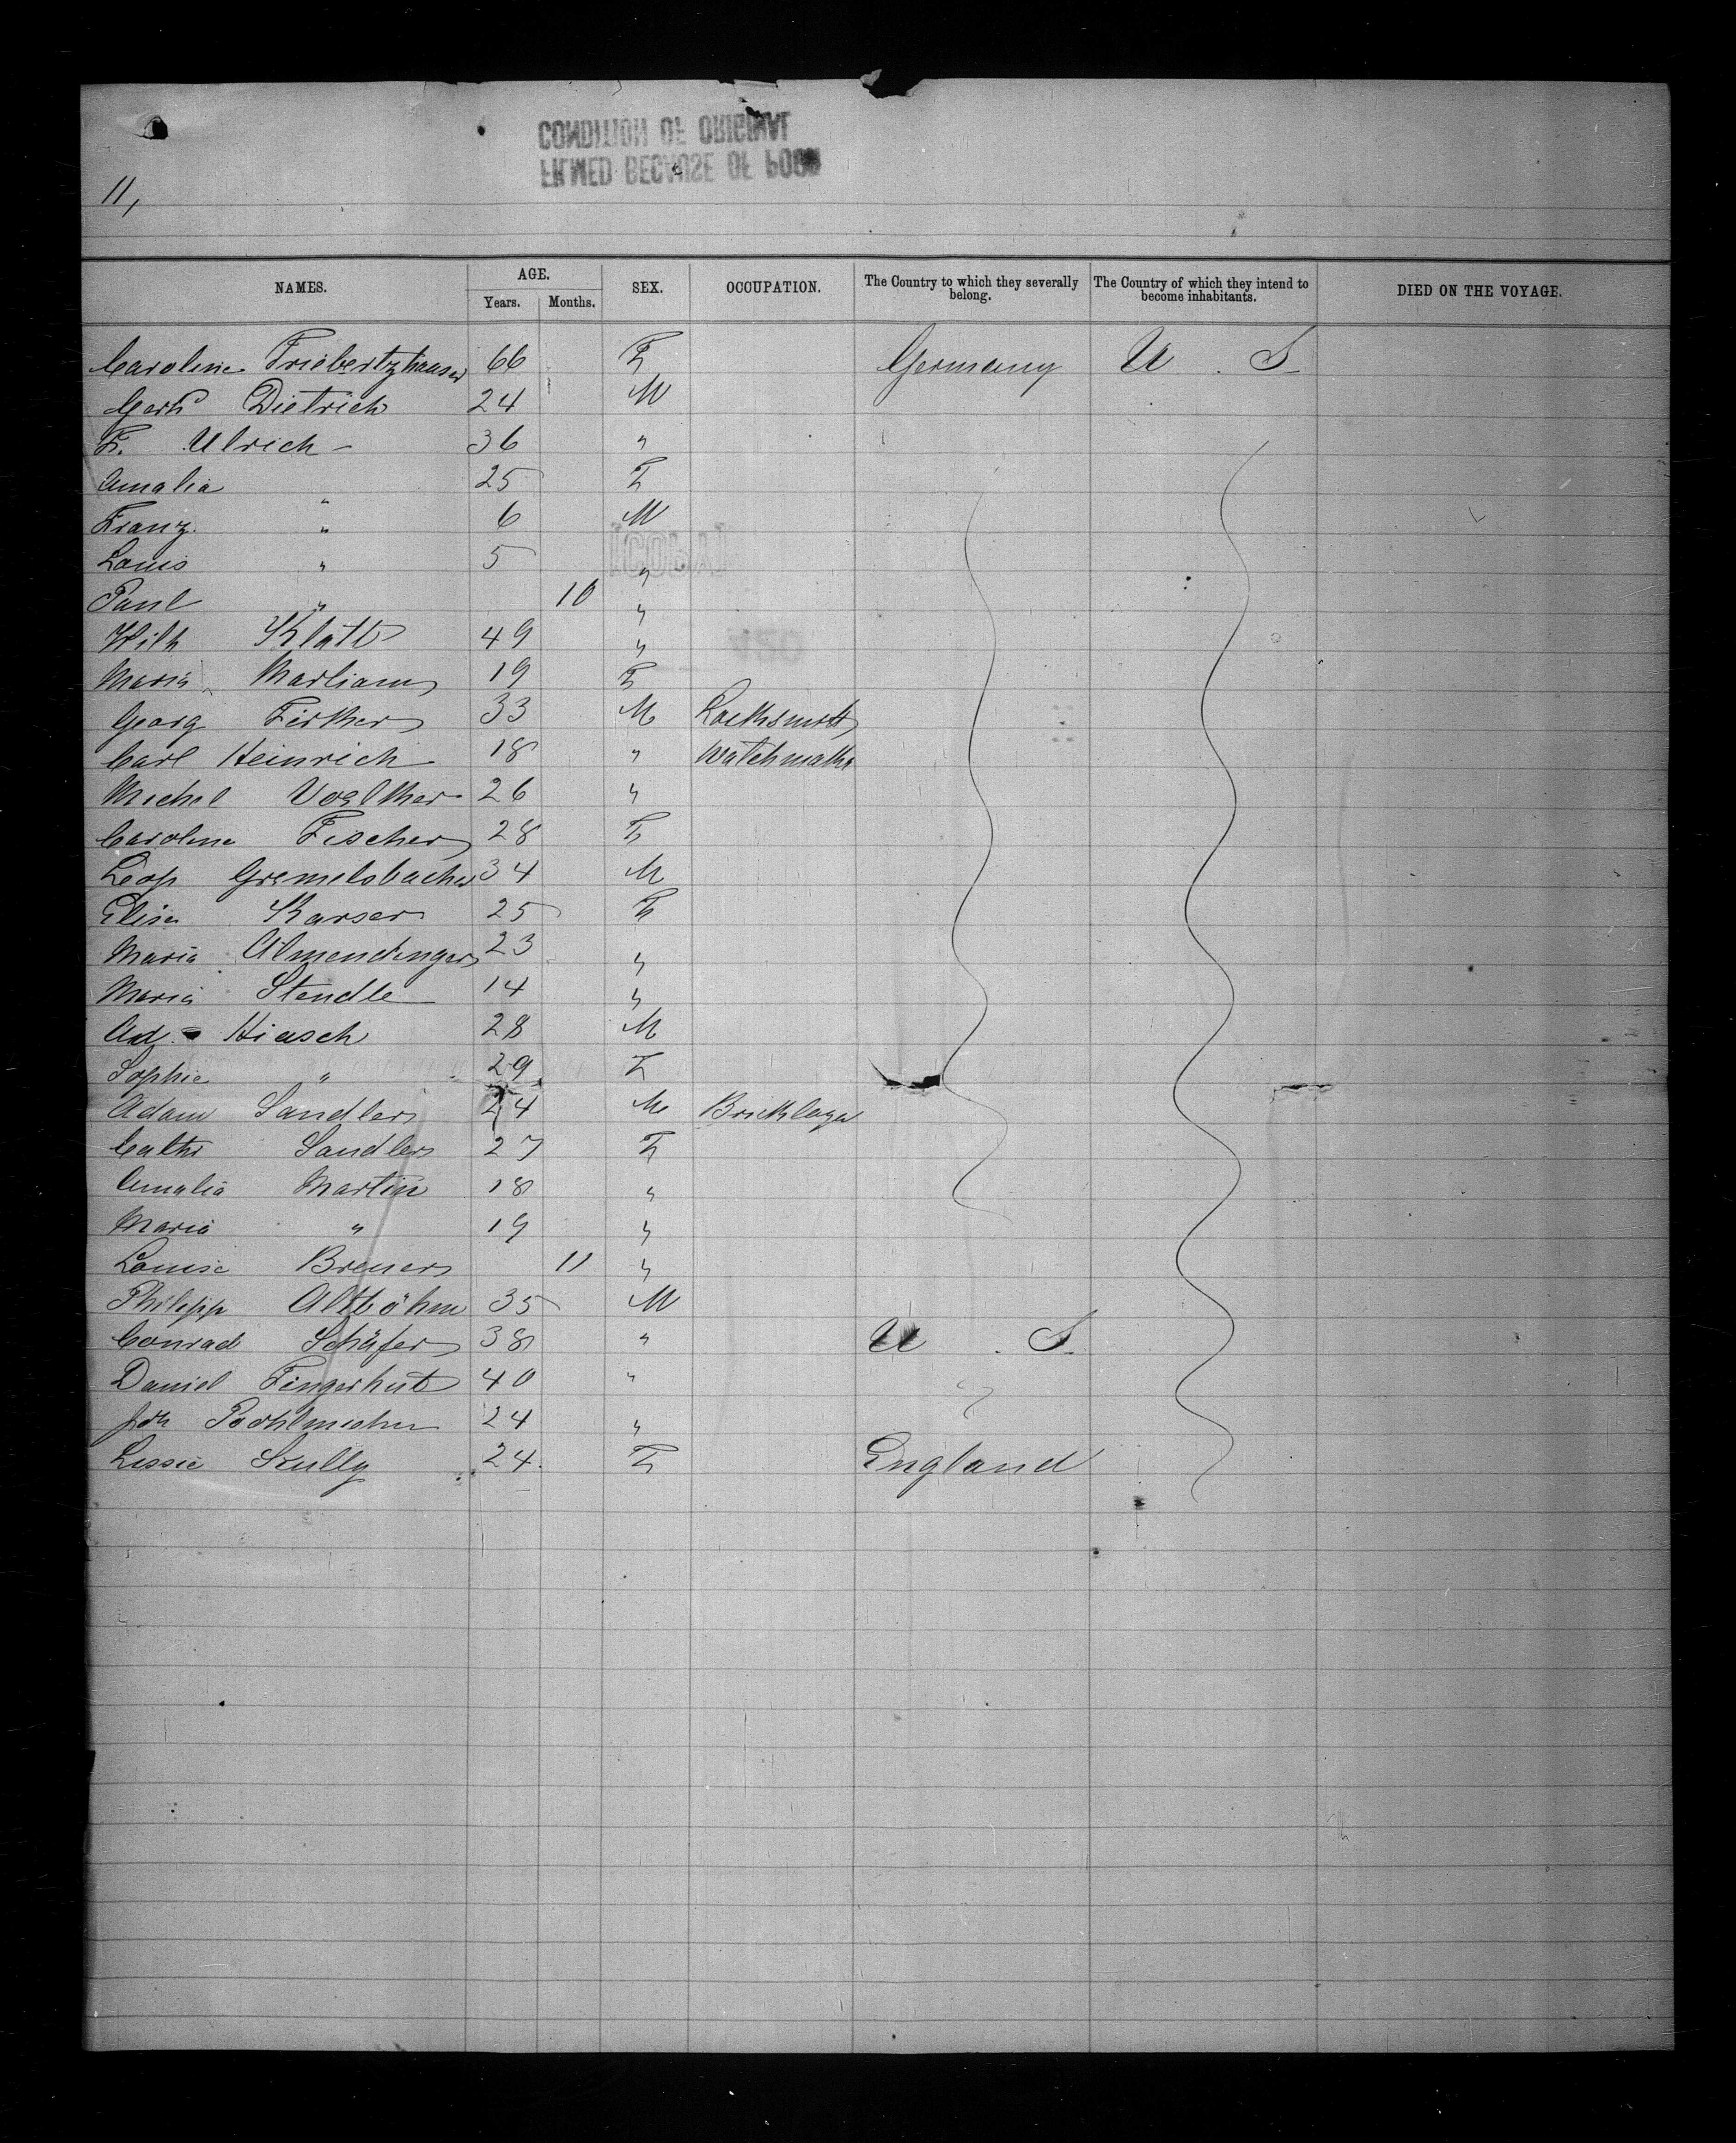 CONDITION OF ORIGINAL
FILMED BECAUSE OF POOR
11,
NAMES. AGE. Years. Months. SEX. OCCUPATION. The Country to which they severally belong. The Country of which they intend to become inhabitants. DIED ON THE VOYAGE.
Caroline Friebertzhauser 66 F Germany U. S.
Gerh Dietrich 24 M
F. Ulrich - 36 "
Amalia " 25 F
Franz. " 6 M
Louis " 5 "
Paul " 10 "
Wilh Klatt 49 "
Maria 19 F
Georg 33 M Locksmith
Carl Heinrich 18 " Watchmaker
Michel Voelker 26 "
Caroline Fischer 28 F
Leop Gremelsbacher 34 M
Elise Karser 25 F
Maria Almendinger 23 "
Maria Stendle 14 "
Ad. Hirsch 28 M
Sophie " 29 F
Adam Sandler 24 M Bricklayer
Cathr Sandler 27 F
Amalia Martin 18 "
Maria " 19 "
Louise Brener 11 "
Philipp Altböhm 35 M
Conrad Schäfer 38 " U. S.
Daniel Fingerhut 40 " "
Joh 24 "
Lissie Skully 24. F England